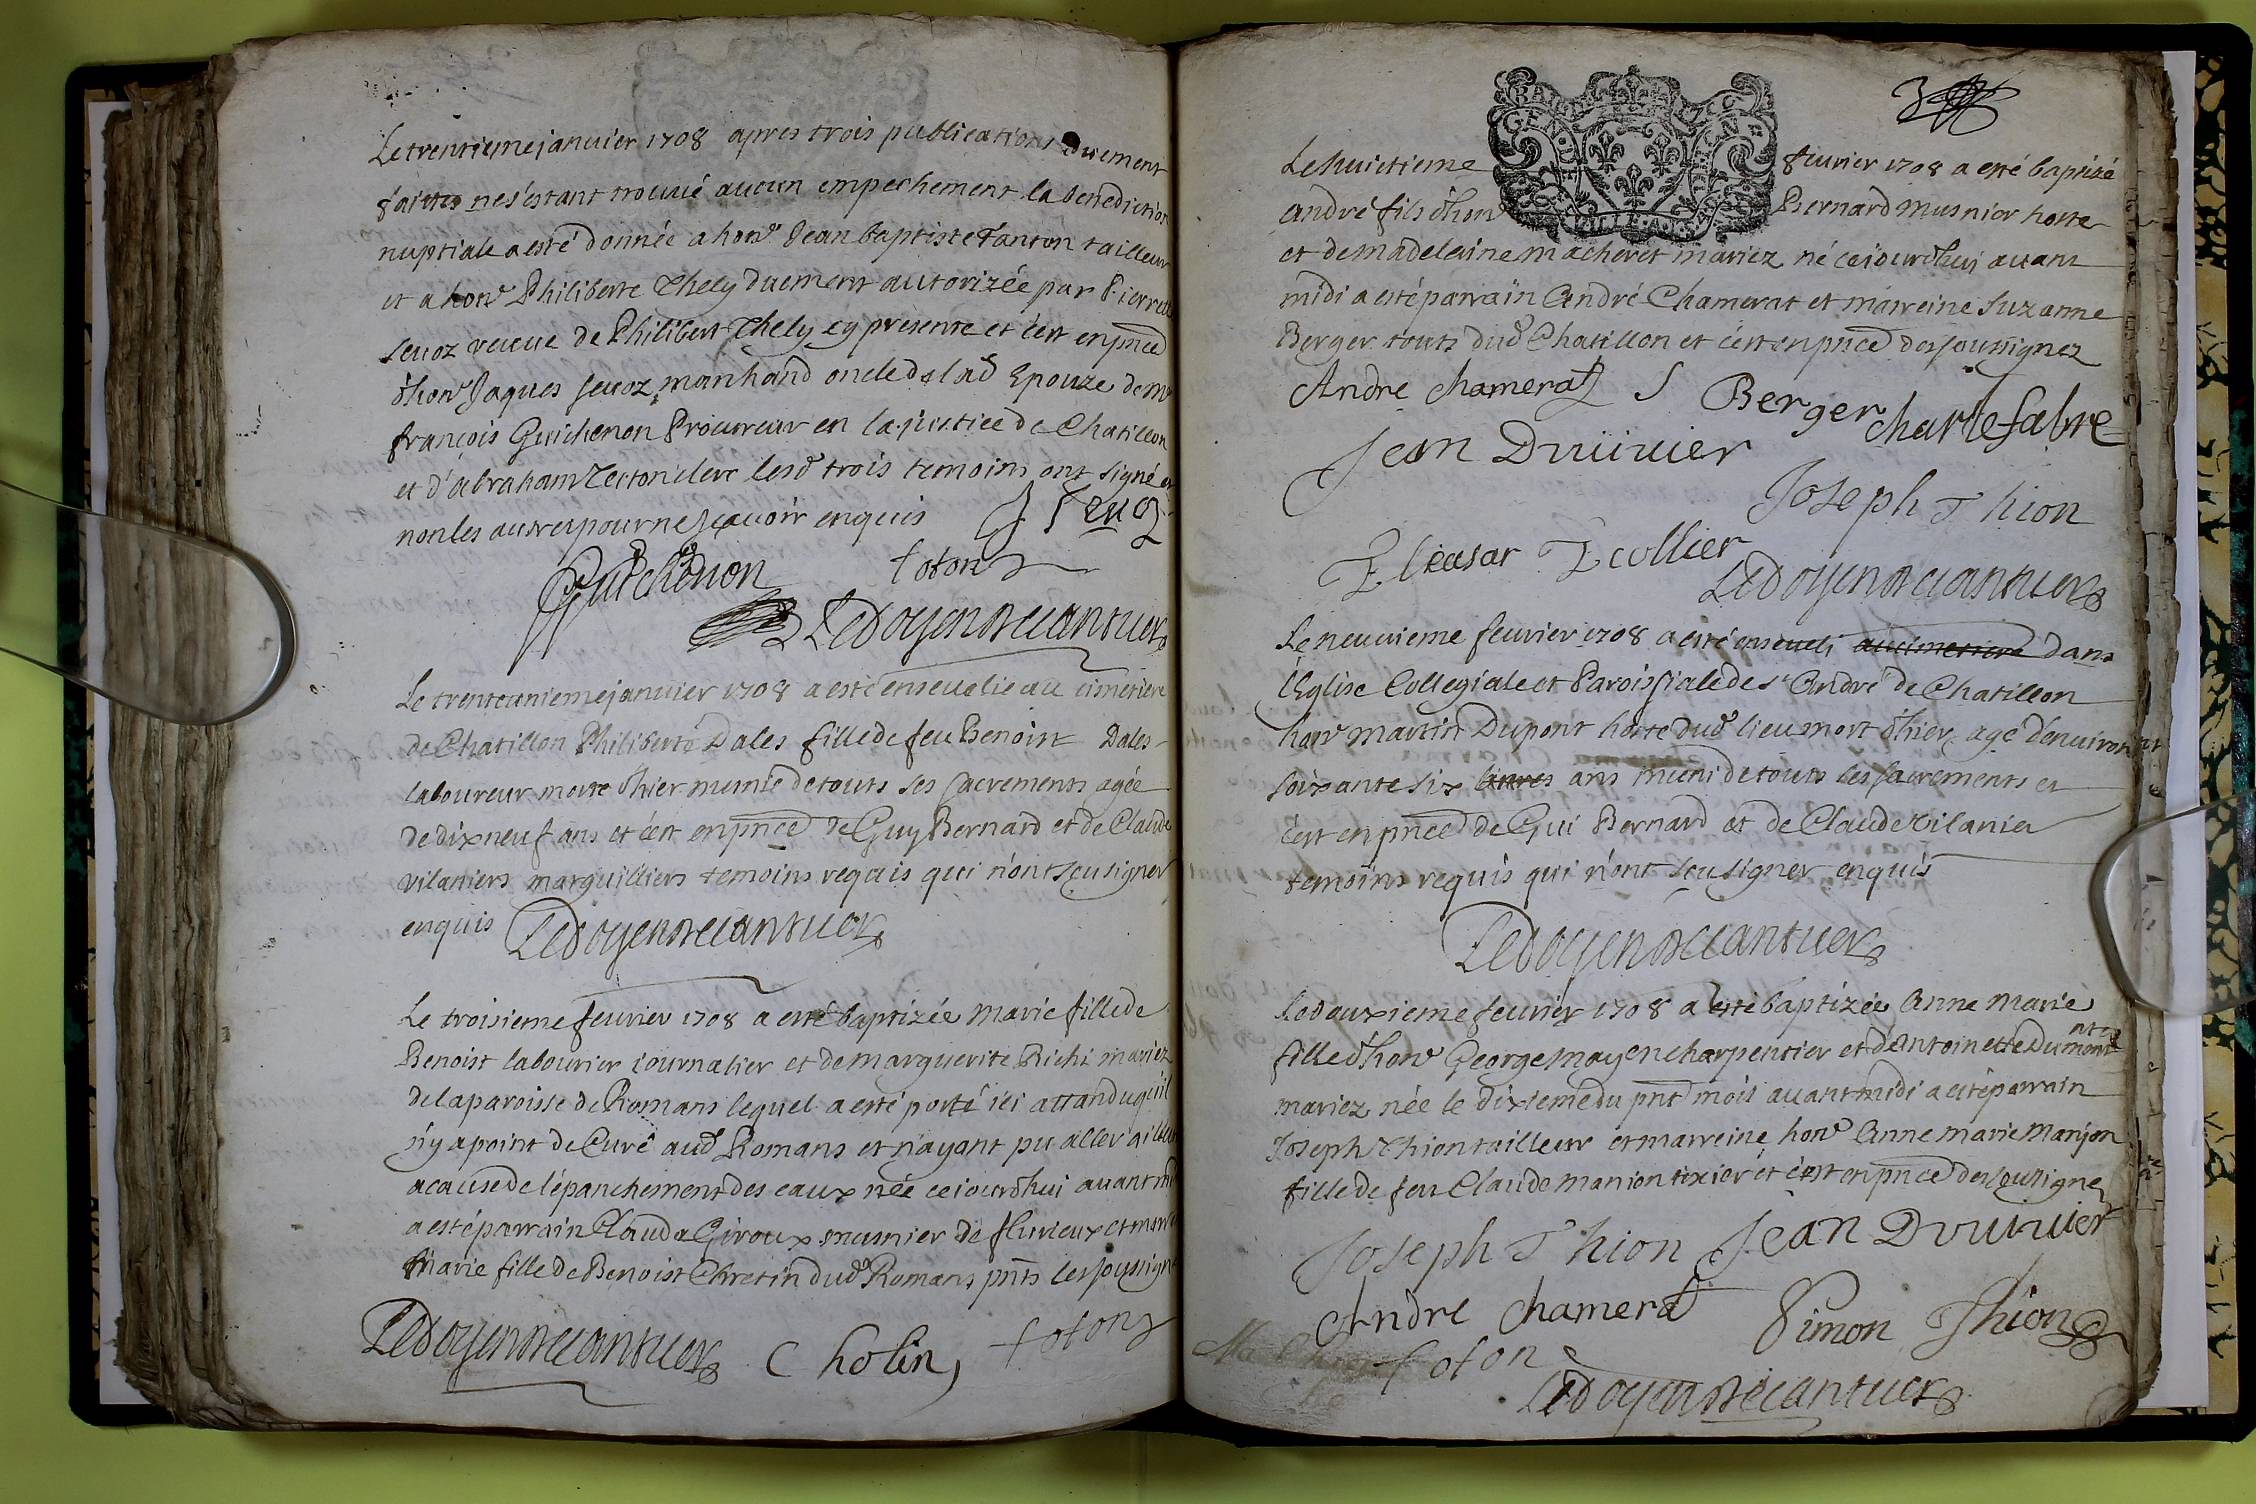 Le trentieme januier 1708 apres trois publications duement
faittes ne s'estant trouué aucun empeschement la benediction
nuptiale a esté donnée a hon^e Jean baptiste Tanton tailleur
et a hon^e Philiberte Thely duement autorizée par Pierrette
Seuoz veuue de Philibert Thely cy presente et c'est en pñce
d'hon^e Jaques Seuoz marchand oncle de lad epouze de m^e
françois Guichenon Procureur en la justice de Chatillon
et d'abraham clerc lesd trois temoins ont signé et
non les autres pour ne sçauoir enquis J Seuoz
Guichenon foton
Le doyen
Le trente unieme januier 1708 a esté enseuelie au cimetiere
de Chatillon Philiberte Dales fille de feu Benoist Dales
laboureur morte d'hier munie de touts ses sacrements agée
de dix neuf ans et c'est en pñce de Guy Bernard et de Claude
vilaniers marguilliers temoins requis qui n'ont sçeu signer
enquis Le doyen
Le troisieme feurier 1708 a esté baptizée Marie fille de
Benoist labourier iournalier et de marguerite Richi mariez
de la paroisse de Romans lequel a esté porté ici attandu qu'il
n'y a point de Curé aud Romans et n'ayant pu aller ailleurs
a cause de l'épanchement des eaux née ceiourdhui auant midi
a esté parrain Claude Giroux musnier de flurieux et marreine
Marie fille de Benoist Chretin dud Romans pñts les soussignez
Le doyen Cholin foton
Le huictieme feurier 1708 a esté baptizé
andré fils d'hon^e Bernard Musnier hoste
et de madeleine macheret mariez né ceiourdhui auant
midi a esté parrain André Chamerat et marreine Suzanne
Berger touts dud Chatillon et c'est en pñce des soussignez
Andre chamerat S Berger charle fabre
Jean Duuiuier
Joseph Thion
Eleasar Ecollier
Le doyen
Le neuuieme feurier 1708 a esté enseueli au cimetiere dans
l'Eglise Collegiale et Paroissiale de s^t André de Chatillon
hon^e martin Dupont hoste dud lieu mort d'hier agé d'enuiron
soixante six ans muni de touts les sacrements et
c'est en pñce de Gui Bernard et de Claude vilanier
temoins requis qui n'ont sçeu signer enquis
Le doyen
Le douxieme feurier 1708 a esté baptizée Anne Marie
fille d'hon^e George moyen charpentier et d'Antoinette Dumont
mariez née le dixieme du pñt mois auant midi a esté parrain
Joseph Thion tailleur et marreine hon^e Anne marie Manjon
fille de feu Claude manion tixier et c'est en pñce des sousignez
Joseph Thion Jean Duuiuier
Andre chamerat Simon Thion
foton
Le doyen